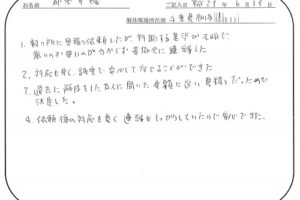 お名前
ご記入日 平成29年6月19日
解体現場所在地 千葉県柏市
1. 数ヶ所に見積り依頼したが、判断する基準が不明で
良いのか悪いのか分からず貴協会に連絡した
2. 対応も早く、誠実で安心して任せることができた
3. 過去に解体をした友人に聞いた金額に近い見積りだったので
決定した。
4. 依頼後の対応も良く連絡もしっかりしていたので安心できた。